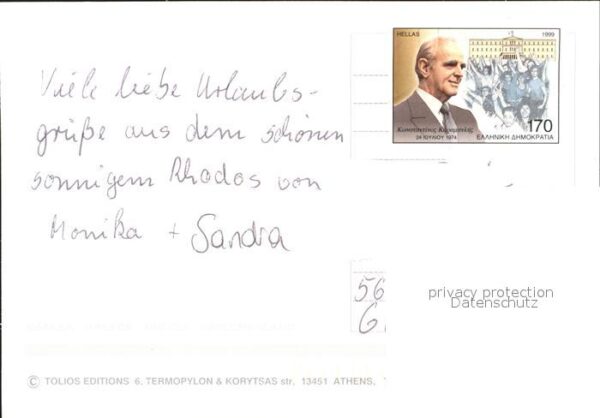 Viele liebe Urlaubs-
grüße aus dem schönen
sonnigem Rhodos von
Monika + Sandra
HELLAS 1999
Κωνσταντίνος Καραμανλής
24 ΙΟΥΛΙΟΥ 1974
170
ΕΛΛΗΝΙΚΗ ΔΗΜΟΚΡΑΤΙΑ
56
G
privacy protection
Datenschutz
© TOLIOS EDITIONS 6, TERMOPYLON & KORYTSAS str. 13451 ATHENS,